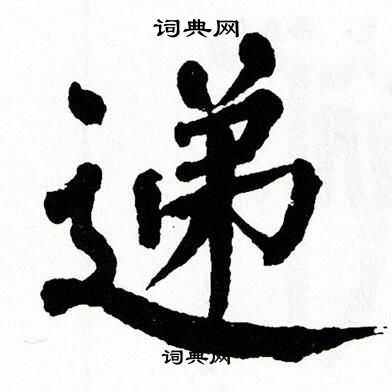 词典网
递
词典网